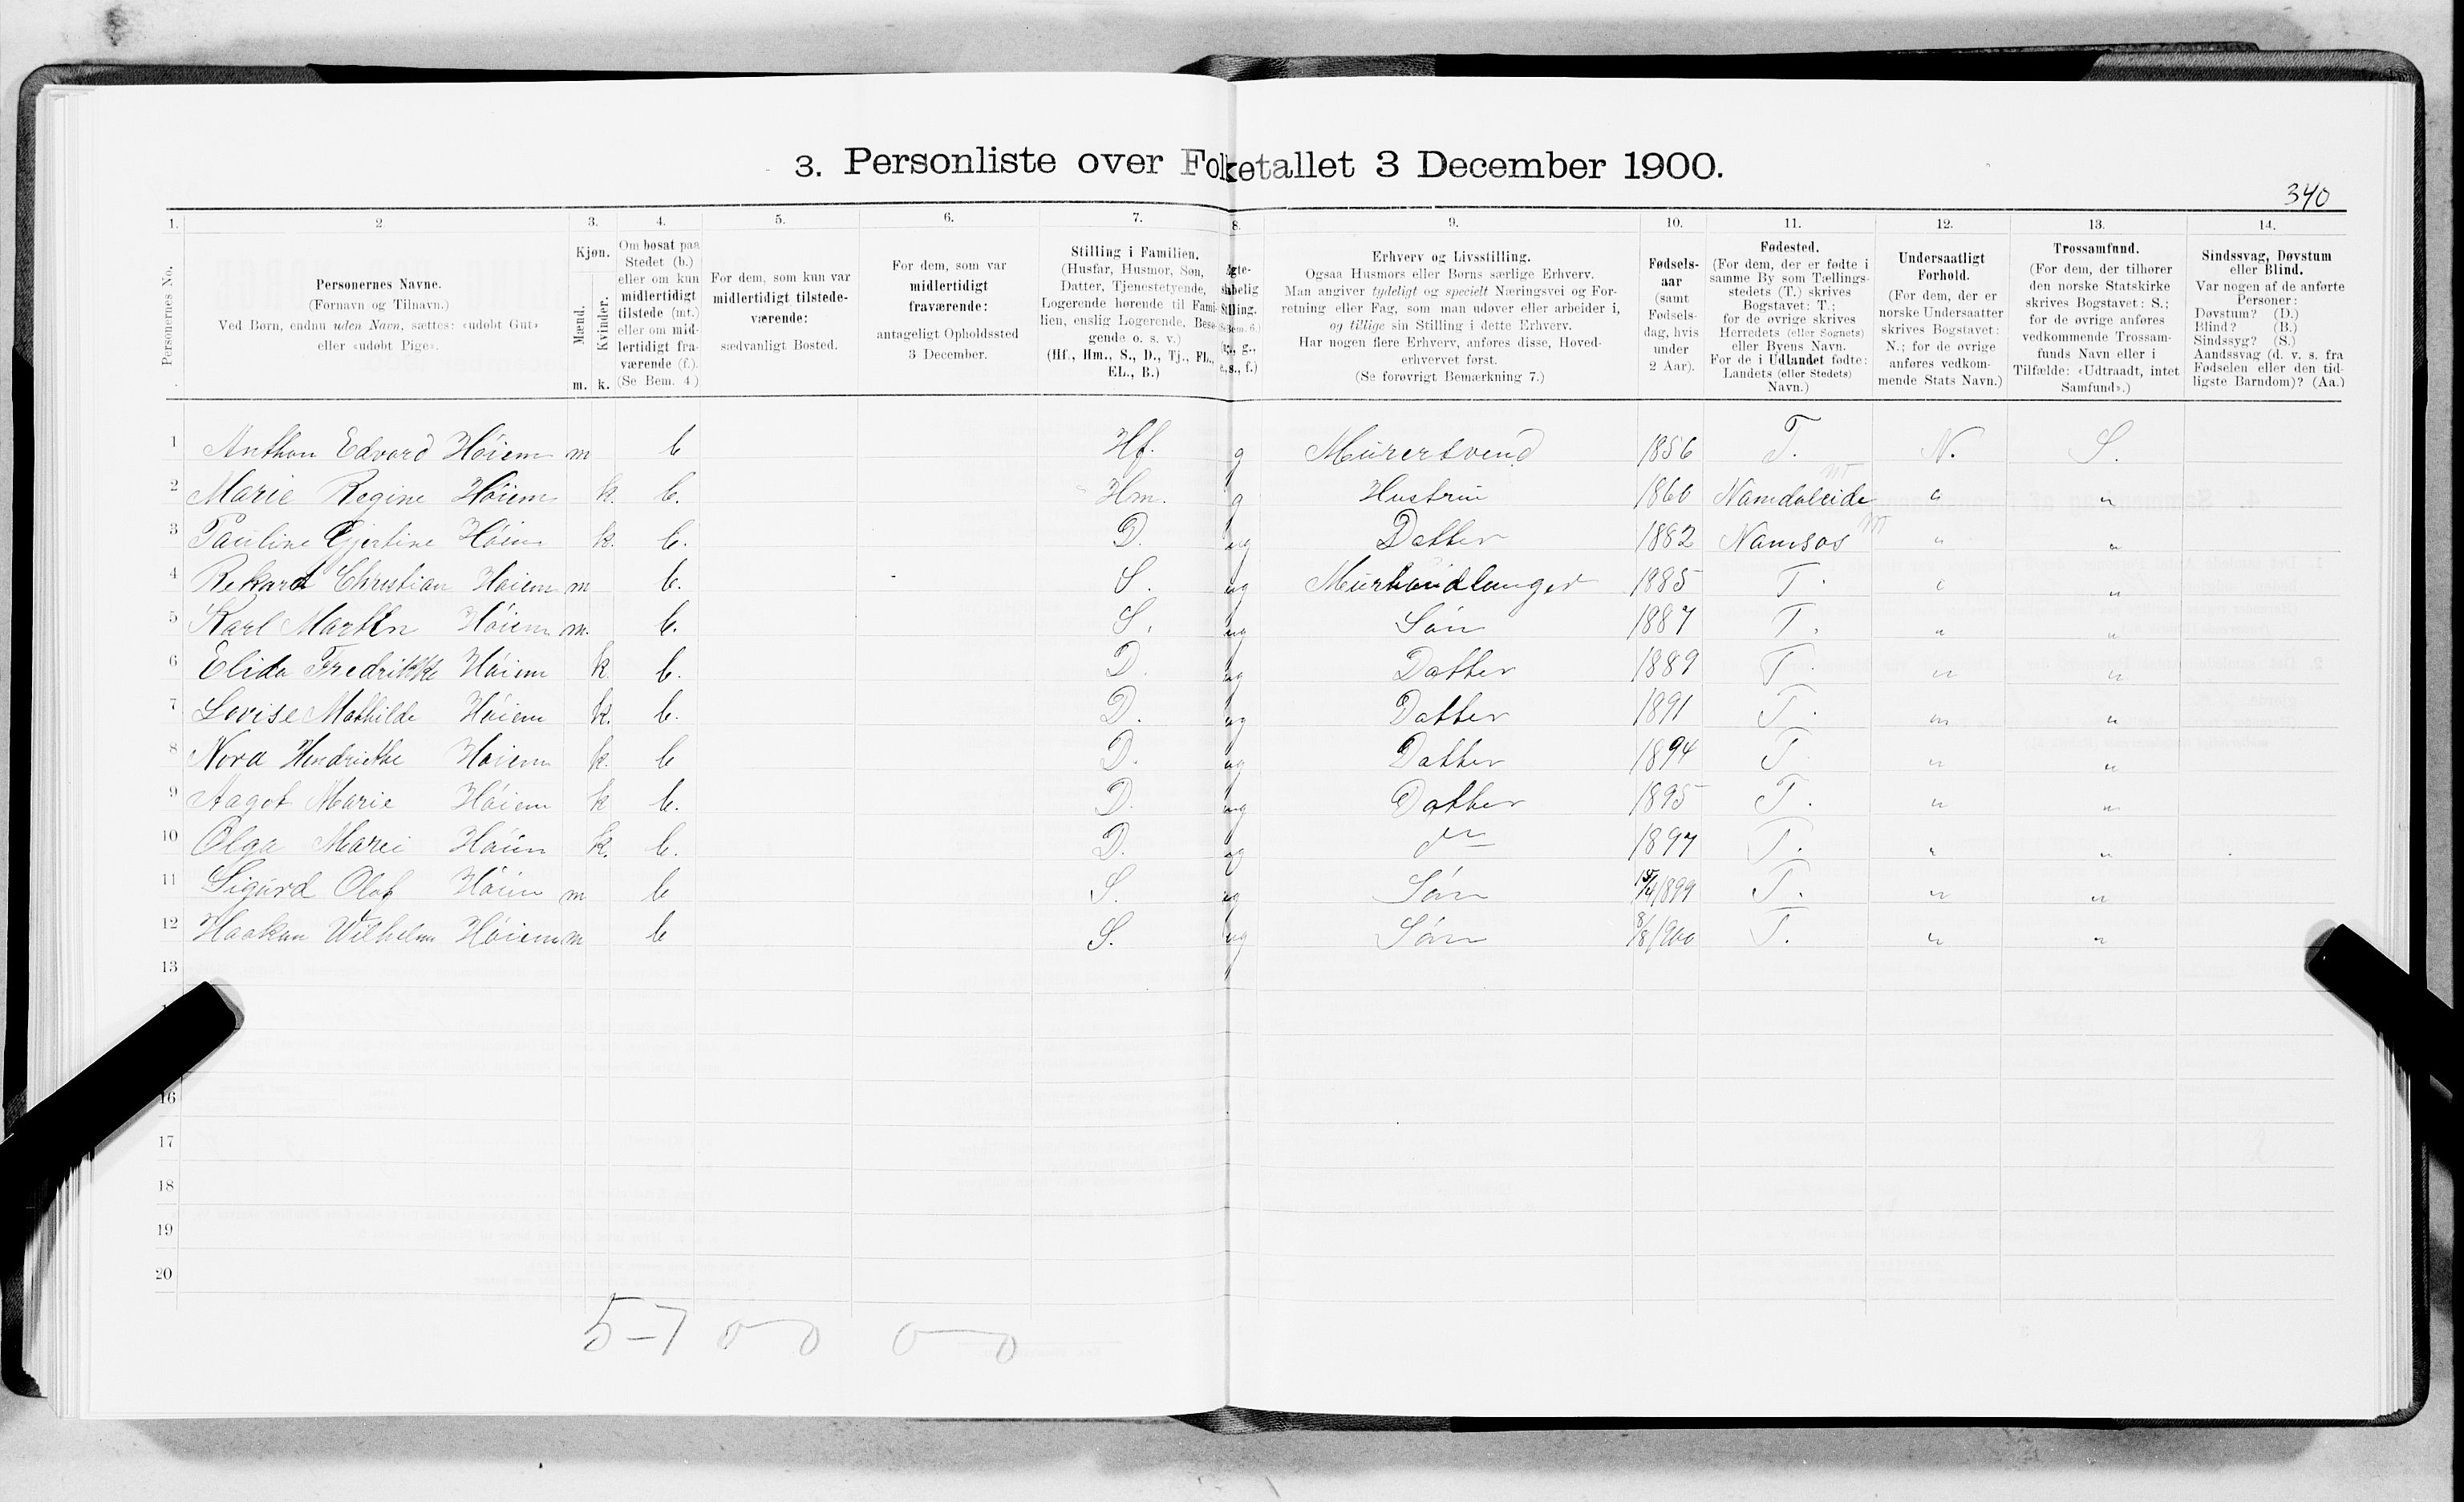 3. Personliste over Folketallet 3 December 1900.
340
1. 2 3. 4. 5. 6. 7. 8. 9. 10. 11. 12. 13. 14.
Personernes No.
Personernes Navne.
(Fornavn og Tilnavn.)
Ved Børn, endnu uden Navn, sættes: «udøbt Gut»
eller «udøbt Pige».
Kjøn.
Mænd.
Kvinder.
m. k.
Om bosat paa
Stedet (b.)
eller om kun
midlertidigt
tilstede (mt.)
eller om mid-
lertidigt fra-
værende (f.).
(Se Bem. 4.)
For dem, som kun var
midlertidigt tilstede-
værende:
sædvanligt Bosted.
For dem, som var
midlertidigt
fraværende:
antageligt Opholdssted
3 December.
Stilling i Familien.
(Husfar, Husmor, Søn,
Datter, Tjenestetyende,
Logerende hørende til Fami-
lien, enslig Logerende, Besø-
gende o. s. v.)
(Hf., Hm., S., D., Tj., FL.,
EL., B.)
Erhverv og Livsstilling.
Ogsaa Husmors eller Børns særlige Erhverv.
Man angiver tydeligt og specielt Næringsvei og For-
retning eller Fag, som man udøver eller arbeider i,
og tillige sin Stilling i dette Erhverv.
Har nogen flere Erhverv, anføres disse, Hoved-
erhvervet først.
(Se forøvrigt Bemærkning 7.)
Fødsels-
aar
(samt
Fødsels-
dag, hvis
under
2 Aar).
Fødested.
(For dem, der er fødte i
samme By som Tællings-
stedets (T.) skrives
Bogstavet: T.;
for de øvrige skrives
Herredets (eller Sognets)
eller Byens Navn.
For de i Udlandet fødte:
Landets (eller Stedets)
Navn.)
Undersaatligt
Forhold.
(For dem, der er
norske Undersaatter
skrives Bogstavet:
N.; for de øvrige
anføres vedkom-
mende Stats Navn.)
Trossamfund.
(For dem, der tilhører
den norske Statskirke
skrives Bogstavet: S.;
for de øvrige anføres
vedkommende Trossam-
funds Navn eller i
Tilfælde: «Udtraadt, intet
Samfund».)
Sindssvag, Døvstum
eller Blind.
Var nogen af de anførte
Personer:
Døvstum? (D.)
Blind? (B.)
Sindssyg? (S.)
Aandssvag (d. v. s. fra
Fødselen eller den tid-
ligste Barndom)? (Aa.)
1 Anthon Edvard Höiem m b Hf. g Murersvend 1856 T. N. S.
2 Marie Regine Höiem k. b. Hm. g Hustrü 1860 Namdaleide " "
3 Pauline Gjertine Höiem k. b. D. ug Datter 1882 Namsos " "
4 Rekard Christian Höiem m b. S. ug Murhaandlanger 1885 T. " "
5 Karl Martin Höiem m. b. S. ug Sön 1887 T. " "
6 Elida Fredrikke Höiem k b. D. ug Datter 1889 T. " "
7 Lovise Mathilde Höiem k. b. D. ug Datter 1891 T. " "
8 Nora Hendrikke Höiem k. b D. ug Datter 1894 T. " "
9 Aagot Marie Höiem k b. D. ug Datter 1895 T. " "
10 Olga Marei Höiem k. b. D. ug 1897 T. " "
11 Sigurd Olaf Höiem m b S. ug Sön 15/4 1899 T. " "
12 Haakon Wilhelm Höiem m b S. ug Sön 8/8 1900 T. " "
13
16
17
18
19
20
5-7 0-0 0-0